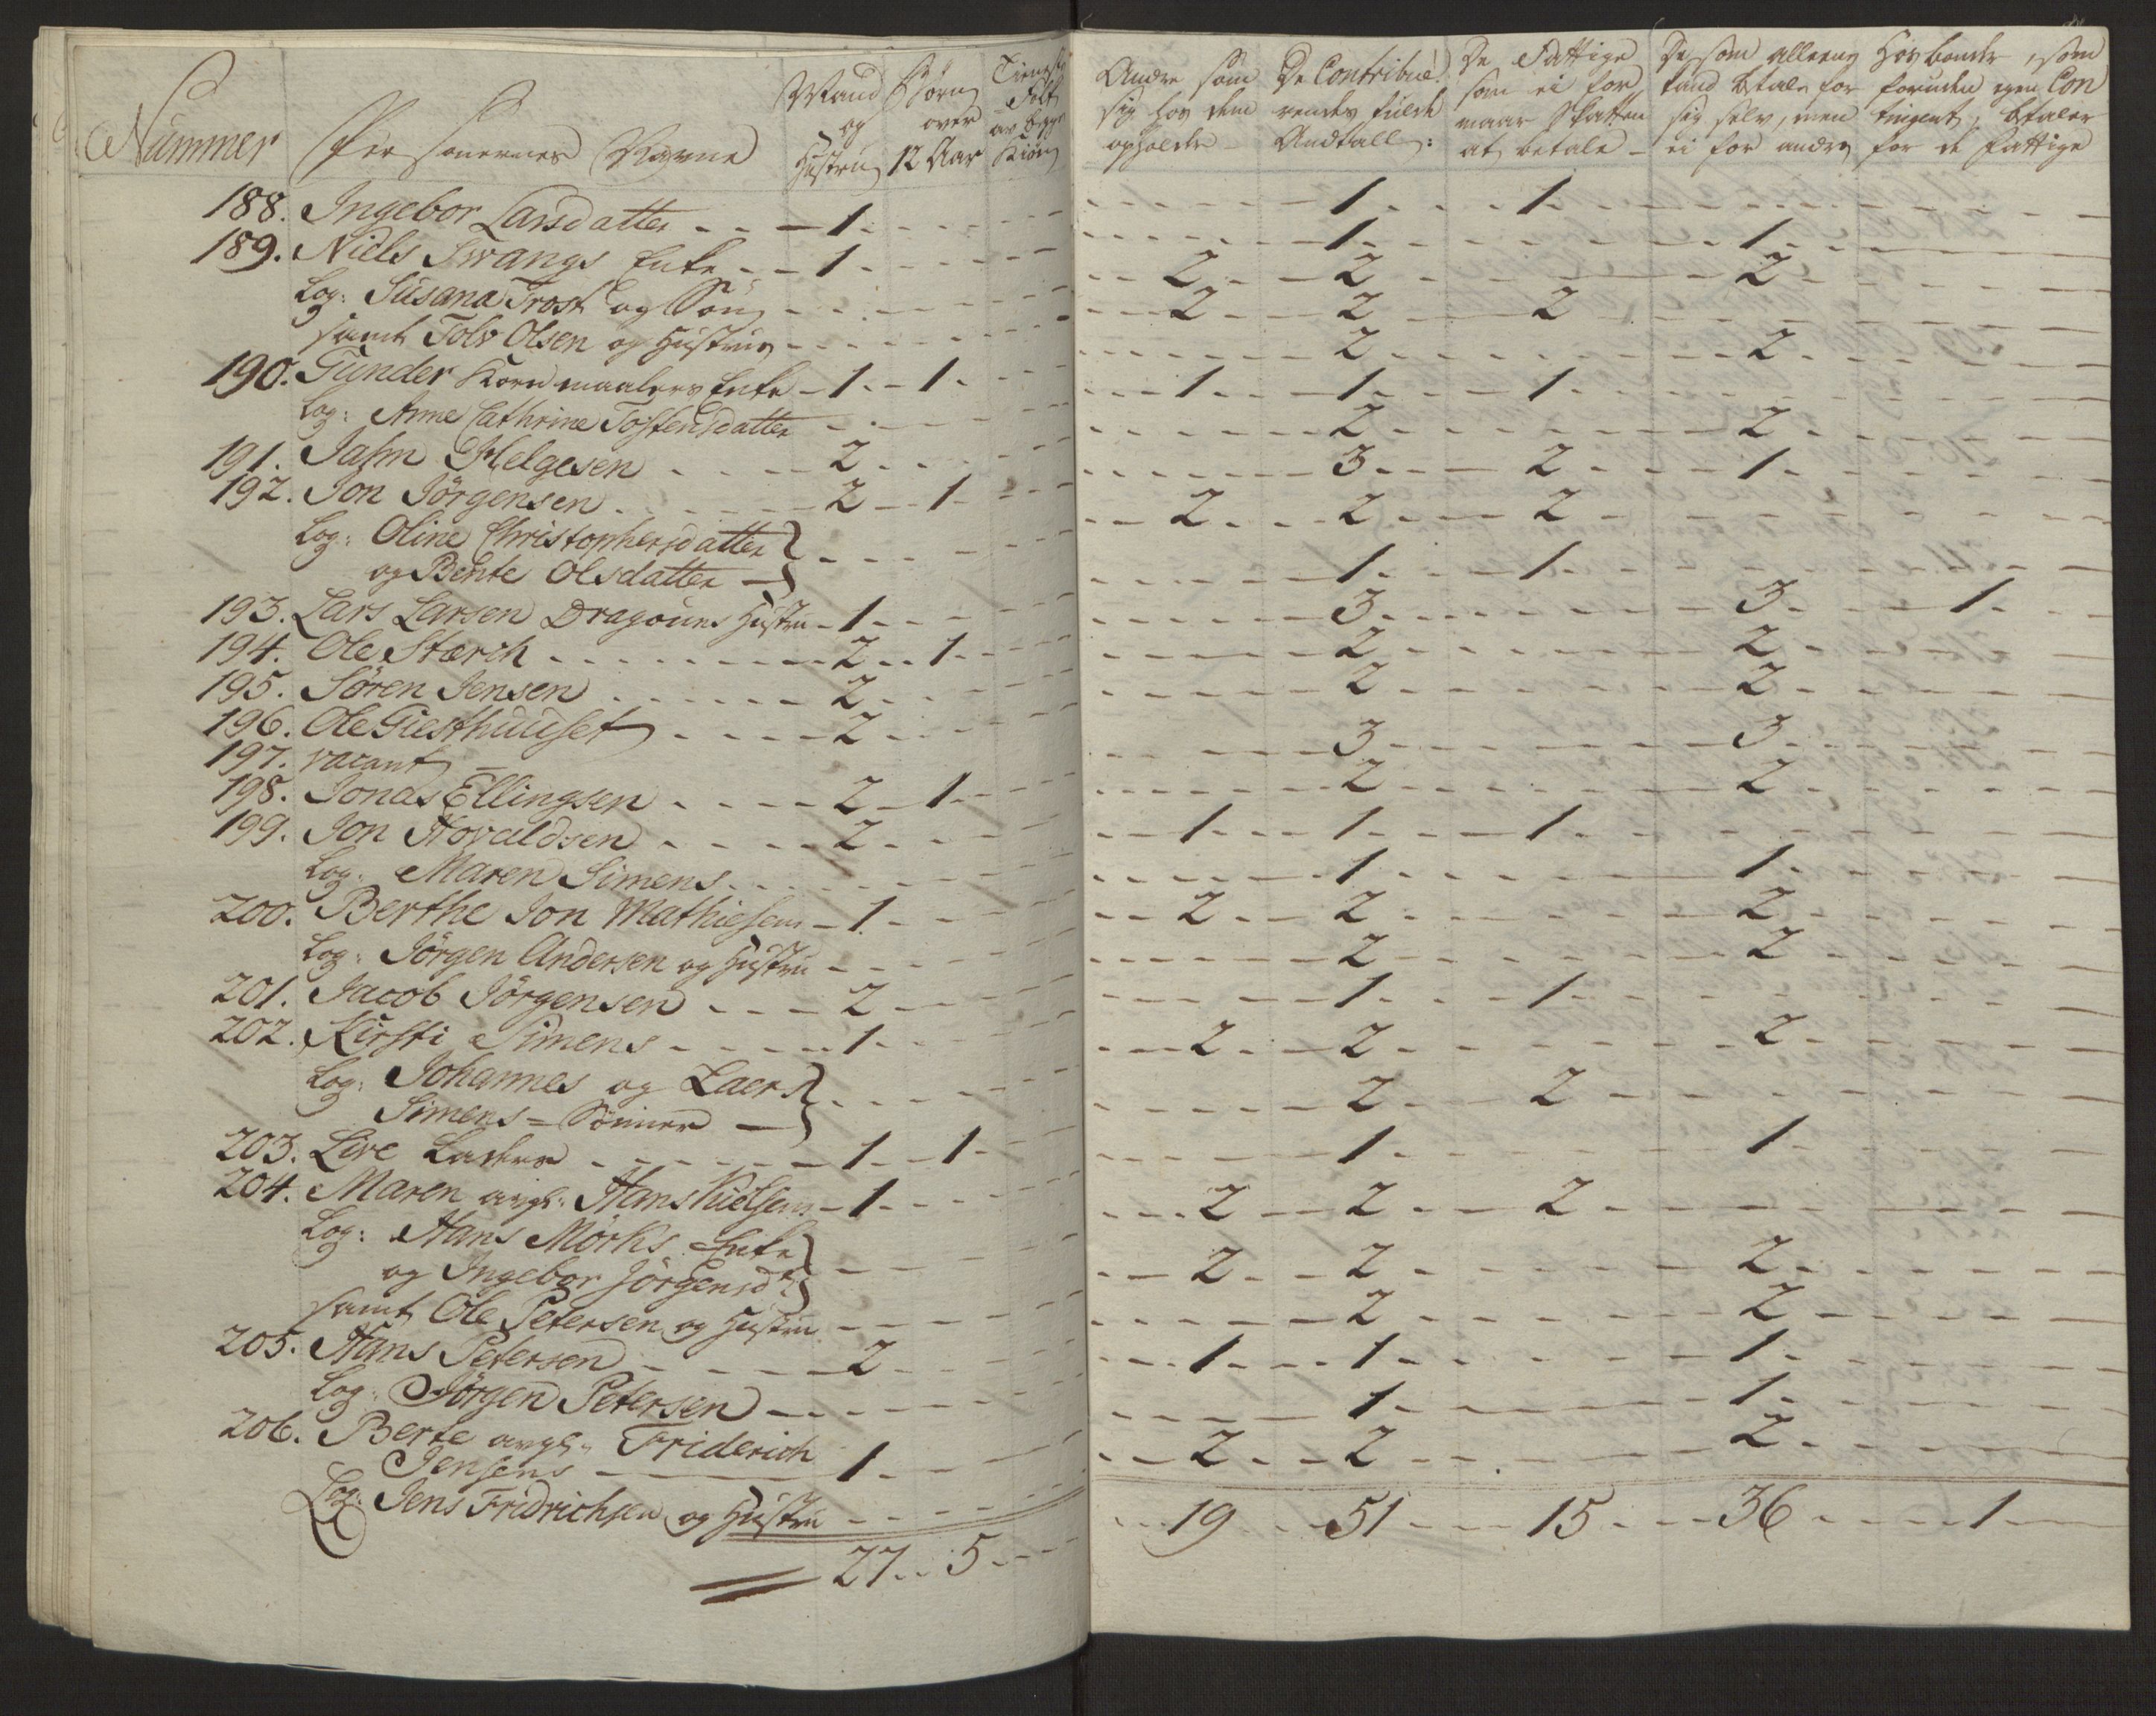 Nummer Personernes Navne Mand og Hustru Børn over 12 Aar Tieneste Folk av begge Kiøn
188. Ingebor Larsdatter - - - 1.
189. Niels Svangs Enke - - 1.
Log: Susana Trost og Søn
samt Tolv Olsen og Hustrue
190. Gunder Kornmaalers Enke - 1. - 1.
Log: Anne Cathrine Tostensdatter
191. Jahn Helgesen 2
192. Jon Jörgensen 2 - 1
Log: Oline Christophersdatter
og Bente Olsdatter
193. Lars Larsen Dragouns Hustru - 1
194. Ole Stærch 2 - 1
195. Sören Jensen 2
196. Ole Giesthuuset 2
197. vacant
198. Jonas Ellingsen 2 - 1
199. Jon Hovaldsen 2
Log: Maren Simens
200. Berthe Jon Mathiesens - 1
Log: Jörgen Andersen og Hustru
201. Jacob Jörgensen 2
202. Kirsti Simens 1
Log: Johannes og Laers
Simens = Sönner
203. Live 1 - 1
204. Maren avgl: Hans Nielsens - 1
Log: Hans Mörks Enke
og Ingebor Jörgensdr
samt Ole Petersen og Hustru
205. Hans Petersen 2
Log: Jörgen Petersen
206. Berte avgl: Friderich
Jensens 1
Log: Jens Fridrichsen og Hustru
27 - 5
Andre som sig hos dem opholder De Contribuerendes fulde Andtall: De Fattige som ei formaar Skatten at betale De som alleene kand betale for sig selv, men ei for andre Hosbonde, som foruden egen Contingent, betaler for de Fattige
1 1
1 1
2 2 2
2 2 2
2 2
1 1 1
2 2
3 2 1
2 2 2
1 1
3 3 1
2 2
2 2
3 3
2 2
1 1 1
1 1
2 2 2
2 2
1 1
2 2 2
2 2
1 1
2 2 2
2 2 2
2 2
1 1 1
1 1
2 2 2
19 51 15 36 1